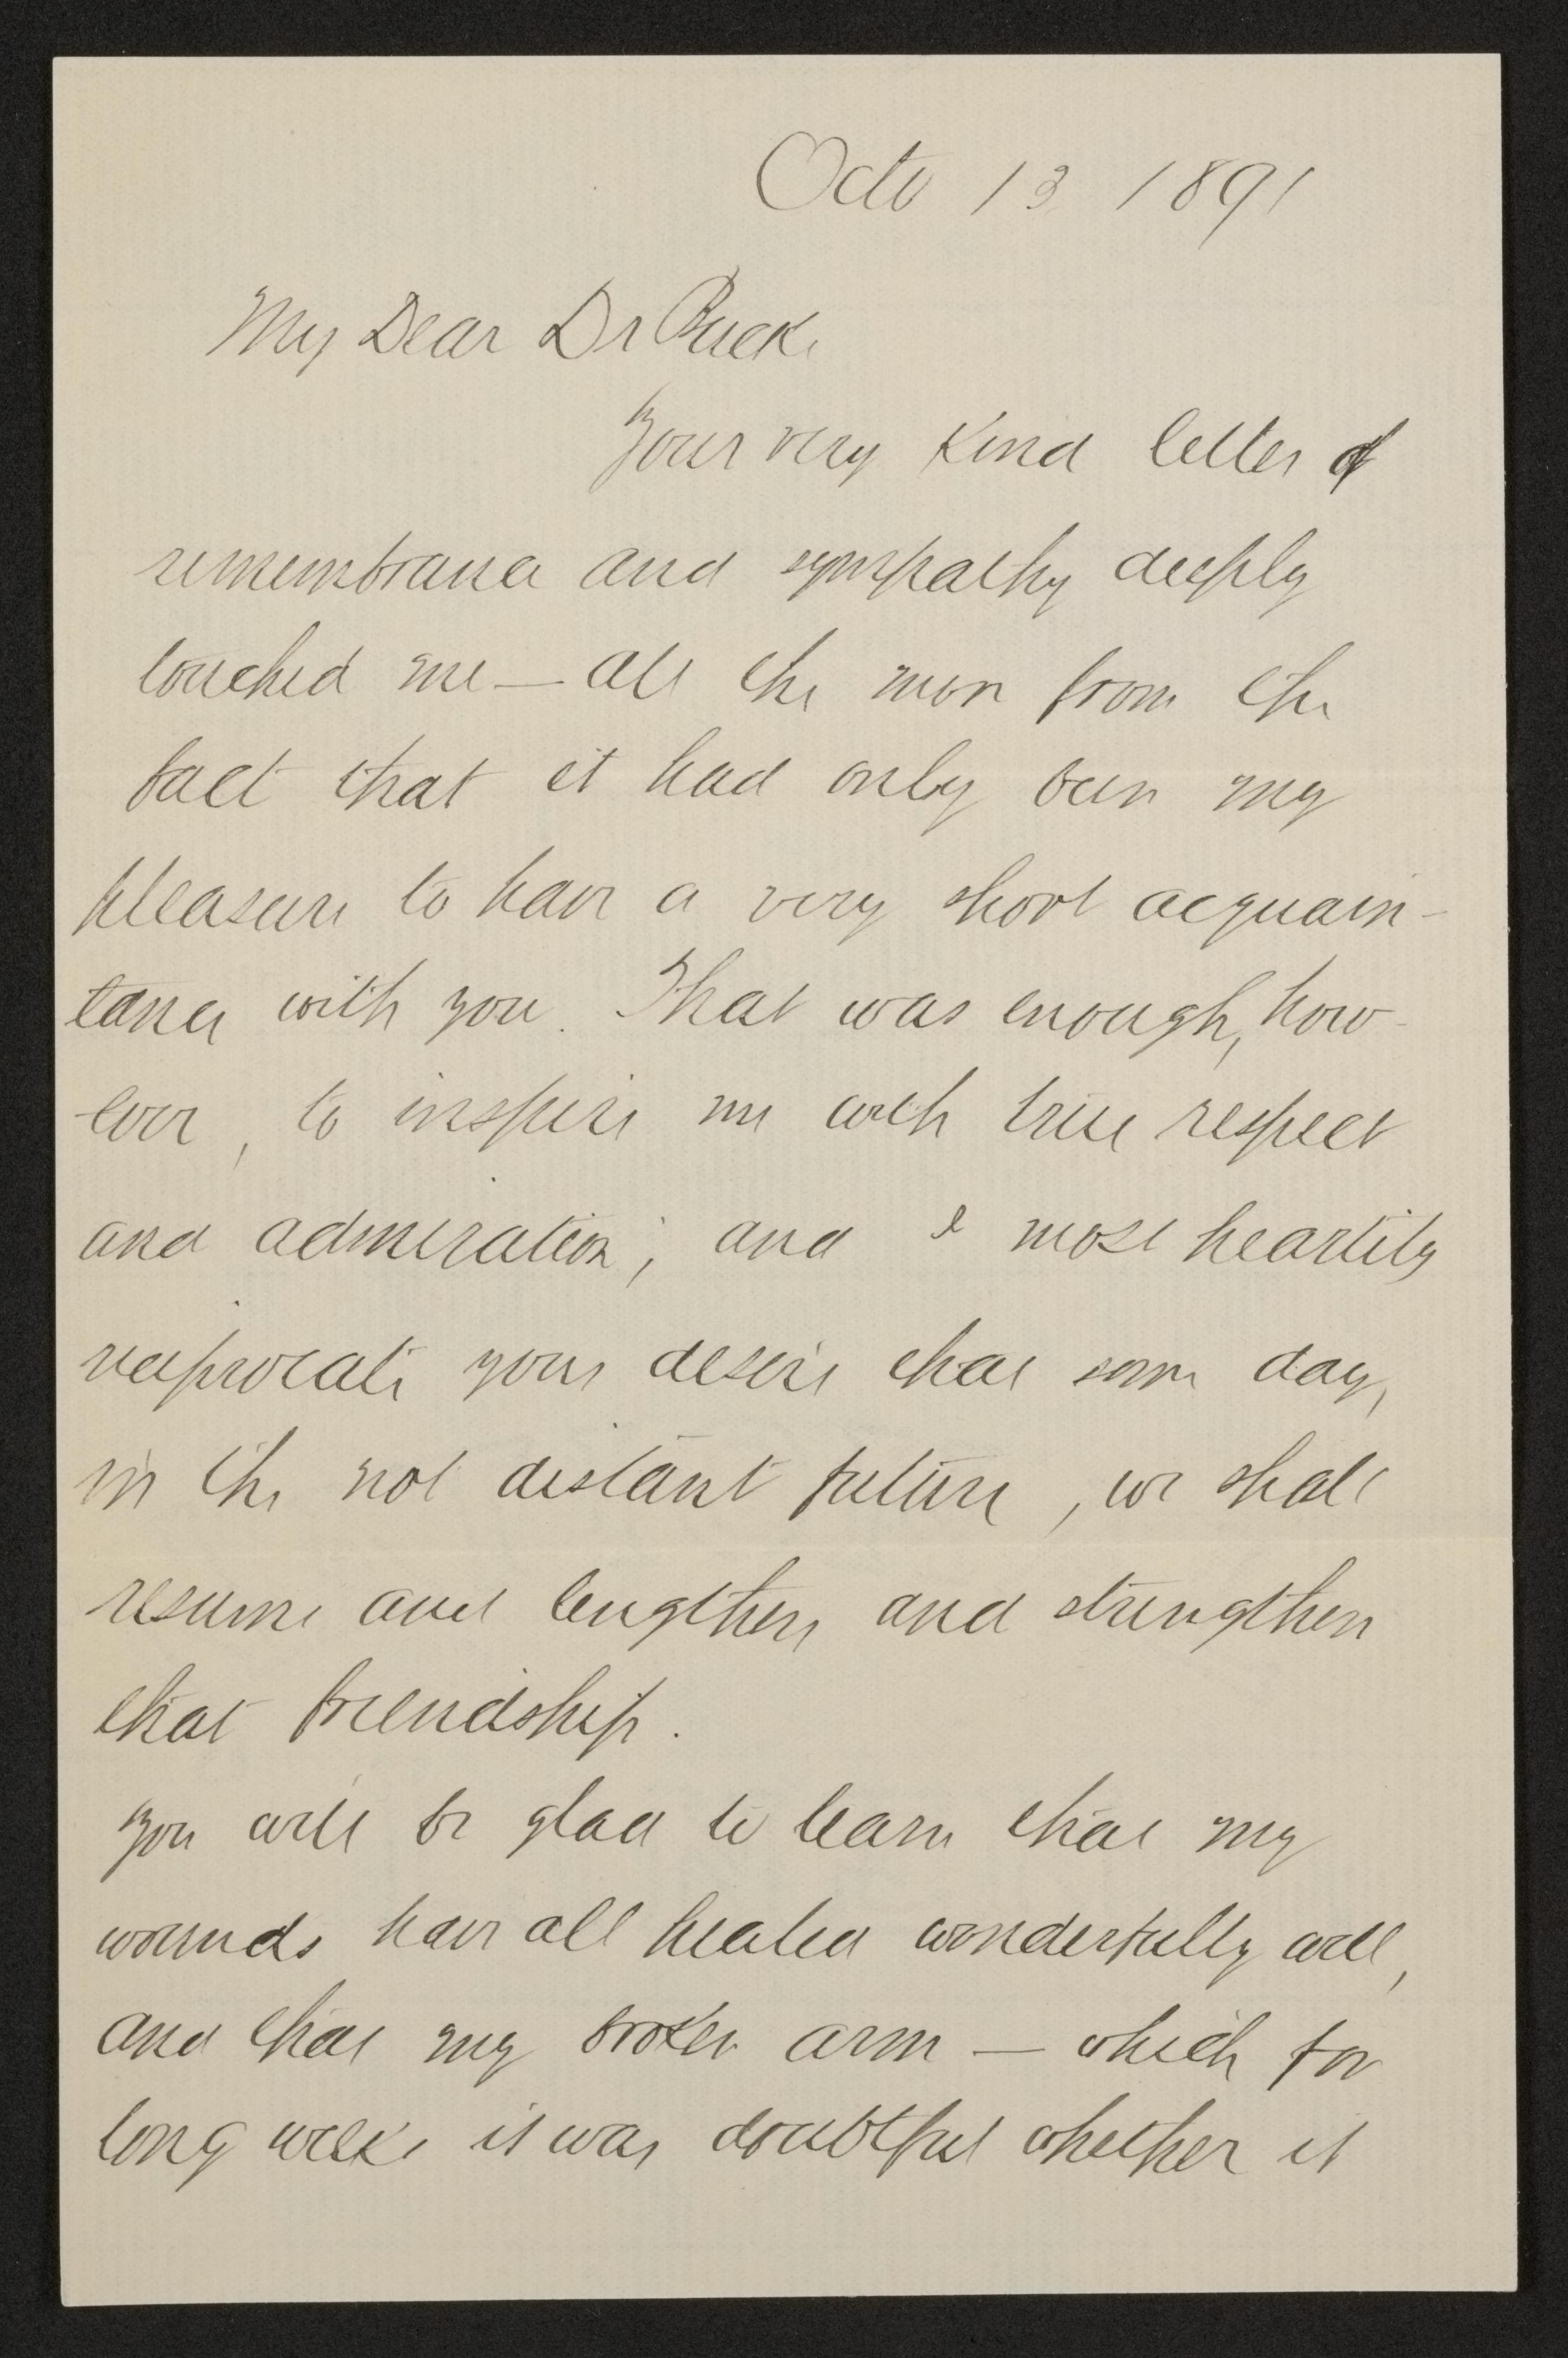 Octo 13 1891
My Dear Dr Buck.
Your very kind letter of
remembrance and sympathy deeply
touched me — all the more from the
fact that it had only been my
pleasure to have a very short acquain-
tance with you. That was enough, how-
ever, to inspire me with true respect
and admiration; and I most heartily
reciprocate your desire that some day,
in the not distant future, we shall
resume and lengthen and strengthen
that friendship.
You will be glad to learn that my
wounds have all healed wonderfully well,
and that my broken arm — which for
long weeks it was doubtful whether it